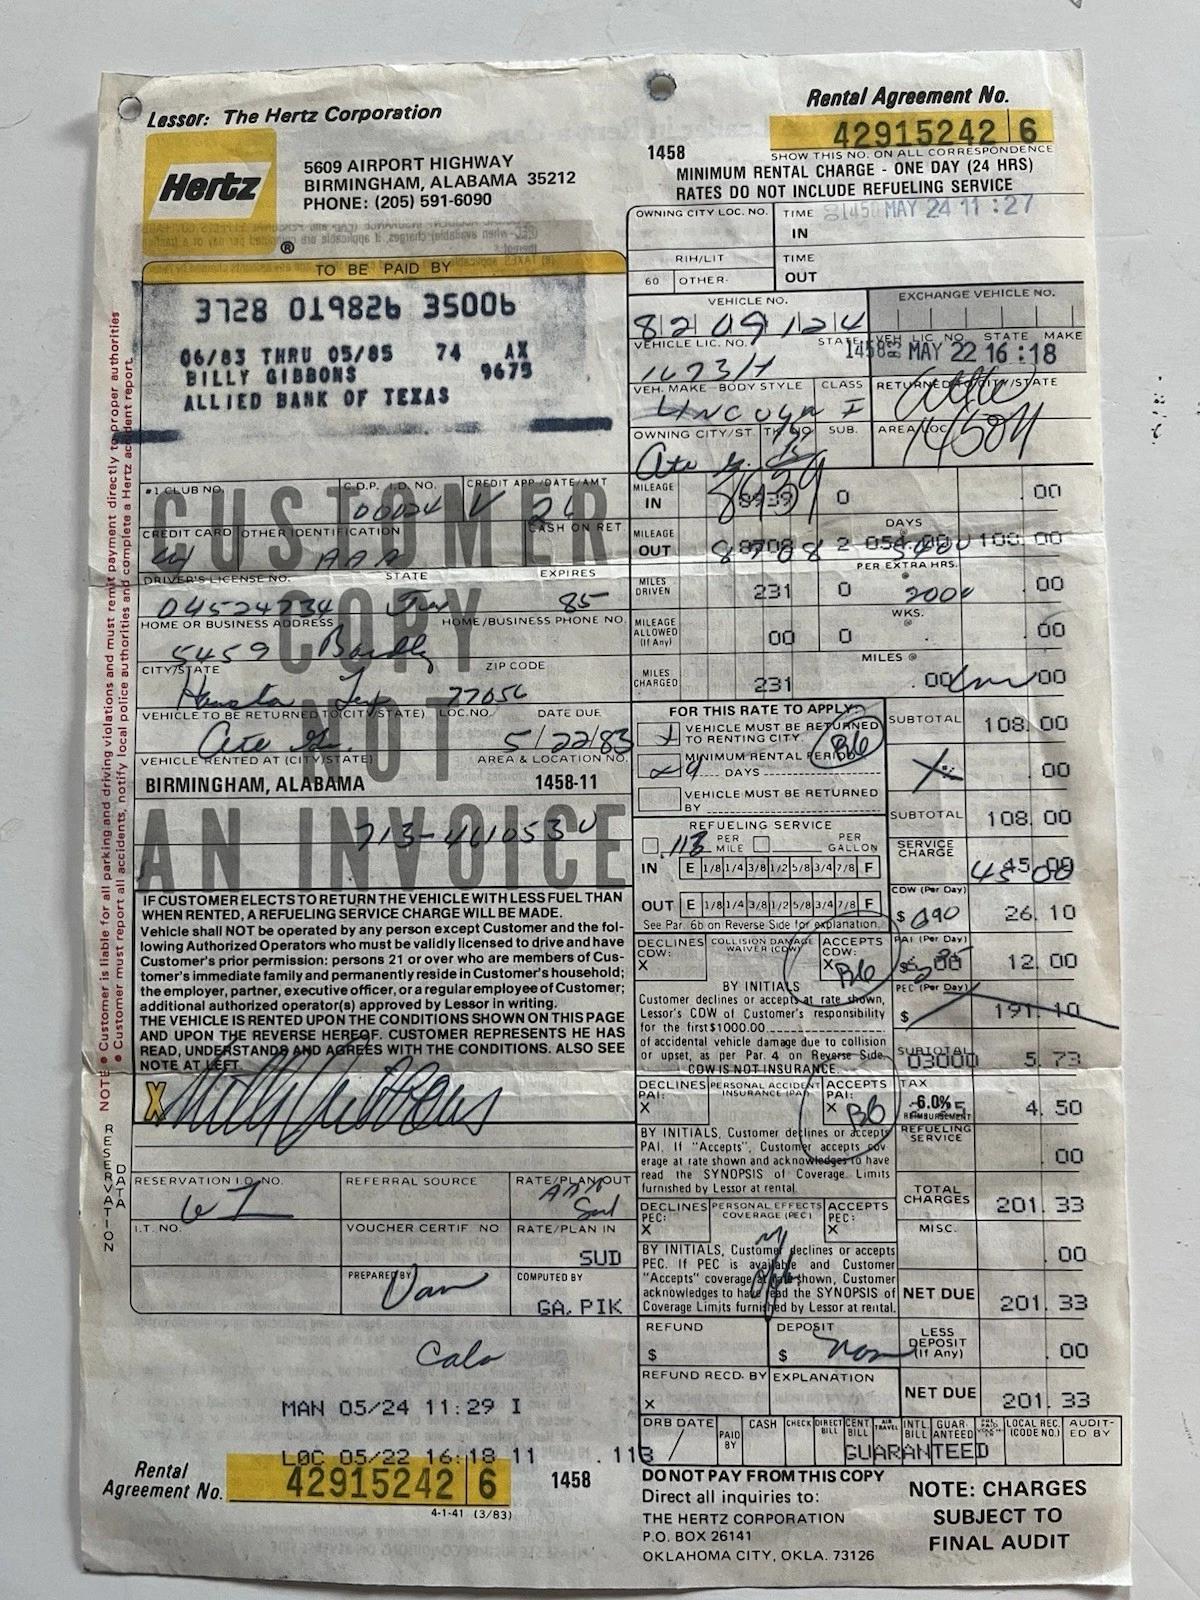 Lessor: The Hertz Corporation
Hertz
®
5609 AIRPORT HIGHWAY
BIRMINGHAM, ALABAMA 35212
PHONE: (205) 591-6090
Rental Agreement No.
42915242 6
1458
SHOW THIS NO. ON ALL CORRESPONDENCE
MINIMUM RENTAL CHARGE - ONE DAY (24 HRS)
RATES DO NOT INCLUDE REFUELING SERVICE
TO BE PAID BY
3728 019826 35006
06/83 THRU 05/85 74 AX
BILLY GIBBONS 9675
ALLIED BANK OF TEXAS
CUSTOMER
COPY
NOT
AN INVOICE
#1 CLUB NO. C.D.P. I.D. NO. CREDIT APP/DATE/AMT
CREDIT CARD/OTHER IDENTIFICATION CASH ON RET
DRIVER'S LICENSE NO. STATE EXPIRES
04524734 85
HOME OR BUSINESS ADDRESS HOME/BUSINESS PHONE NO.
5459
CITY/STATE ZIP CODE
77056
VEHICLE TO BE RETURNED TO (CITY/STATE) LOC. NO. DATE DUE
5/22/83
VEHICLE RENTED AT (CITY/STATE) AREA & LOCATION NO.
BIRMINGHAM, ALABAMA 1458-11
IF CUSTOMER ELECTS TO RETURN THE VEHICLE WITH LESS FUEL THAN
WHEN RENTED, A REFUELING SERVICE CHARGE WILL BE MADE.
Vehicle shall NOT be operated by any person except Customer and the fol-
lowing Authorized Operators who must be validly licensed to drive and have
Customer's prior permission: persons 21 or over who are members of Cus-
tomer's immediate family and permanently reside in Customer's household;
the employer, partner, executive officer, or a regular employee of Customer;
additional authorized operator(s) approved by Lessor in writing.
THE VEHICLE IS RENTED UPON THE CONDITIONS SHOWN ON THIS PAGE
AND UPON THE REVERSE HEREOF. CUSTOMER REPRESENTS HE HAS
READ, UNDERSTANDS AND AGREES WITH THE CONDITIONS. ALSO SEE
NOTE AT LEFT.
X Billy Gibbons
NOTE: ● Customer is liable for all parking and driving violations and must remit payment directly to proper authorities
● Customer must report all accidents, notify local police authorities and complete a Hertz accident report.
RESERVATION DATA
RESERVATION I.D. NO. REFERRAL SOURCE RATE/PLAN OUT
I.T. NO. VOUCHER CERTIF NO RATE/PLAN IN
SUD
PREPARED BY COMPUTED BY
GA. PIK
MAN 05/24 11:29 I
LOC 05/22 16:18 11 . 113
Rental
Agreement No. 42915242 6 1458
4-1-41 (3/83)
OWNING CITY LOC. NO. TIME IN 81450 MAY 24 11:27
RIH/LIT TIME OUT
60 OTHER-
VEHICLE NO. EXCHANGE VEHICLE NO.
8209124
VEHICLE LIC. NO. STATE VEH LIC NO STATE MAKE
MAY 22 16:18
VEH. MAKE-BODY STYLE CLASS RETURNED CITY/STATE
OWNING CITY/ST. SUB. AREA/LOC
MILEAGE IN 8939 0 .00
DAYS
MILEAGE OUT 8708 2 054.00 108.00
PER EXTRA HRS.
MILES DRIVEN 231 0 .00
WKS.
MILEAGE ALLOWED (If Any) 00 0 .00
MILES @
MILES CHARGED 231 .00 .00
FOR THIS RATE TO APPLY: SUBTOTAL 108.00
VEHICLE MUST BE RETURNED
TO RENTING CITY. BG
MINIMUM RENTAL PERIOD .00
DAYS
VEHICLE MUST BE RETURNED
BY
SUBTOTAL 108.00
REFUELING SERVICE
.113 PER MILE PER GALLON
SERVICE CHARGE 45.00
IN E 1/8 1/4 3/8 1/2 5/8 3/4 7/8 F
CDW (Per Day)
OUT E 1/8 1/4 3/8 1/2 5/8 3/4 7/8 F $ 26.10
See Par. 6b on Reverse Side for explanation.
DECLINES CDW: X COLLISION DAMAGE WAIVER (CDW) ACCEPTS CDW: X BG
PAI (Per Day)
$ 12.00
PEC (Per Day)
$ 191.10
BY INITIALS
Customer declines or accepts at rate shown,
Lessor's CDW of Customer's responsibility
for the first $1000.00
of accidental vehicle damage due to collision
or upset, as per Par. 4 on Reverse Side.
CDW IS NOT INSURANCE.
SUBTOTAL 03000 5.73
DECLINES PAI: X PERSONAL ACCIDENT INSURANCE (PAI) ACCEPTS PAI: X BG
TAX
6.0% REIMBURSEMENT 4.50
BY INITIALS, Customer declines or accepts
PAI. If "Accepts", Customer accepts cov-
erage at rate shown and acknowledges to have
read the SYNOPSIS of Coverage. Limits
furnished by Lessor at rental.
REFUELING SERVICE .00
TOTAL CHARGES 201.33
DECLINES PEC: X PERSONAL EFFECTS COVERAGE (PEC) ACCEPTS PEC: X
MISC. .00
BY INITIALS, Customer declines or accepts
PEC. If PEC is available and Customer
"Accepts" coverage at rate shown, Customer
acknowledges to have read the SYNOPSIS of
Coverage Limits furnished by Lessor at rental.
NET DUE 201.33
REFUND DEPOSIT
$ $
LESS DEPOSIT (If Any) .00
REFUND RECD. BY EXPLANATION
X
NET DUE 201.33
DRB DATE PAID BY CASH CHECK DIRECT BILL CENT. BILL AIR TRAVEL INTL BILL GUAR-ANTEED LOCAL REC. (CODE NO.) AUDIT-ED BY
GUARANTEED
DO NOT PAY FROM THIS COPY
Direct all inquiries to:
THE HERTZ CORPORATION
P.O. BOX 26141
OKLAHOMA CITY, OKLA. 73126
NOTE: CHARGES
SUBJECT TO
FINAL AUDIT